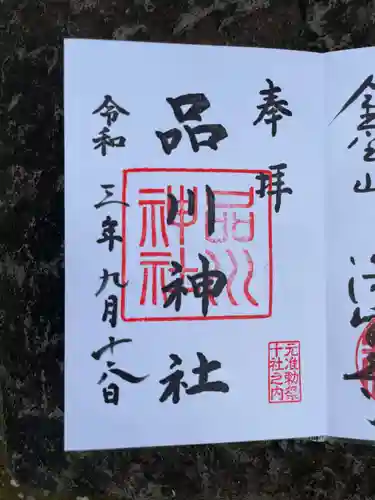 奉拝
品川神社
品川神社
元准勅祭
十社之内
令和三年九月十八日